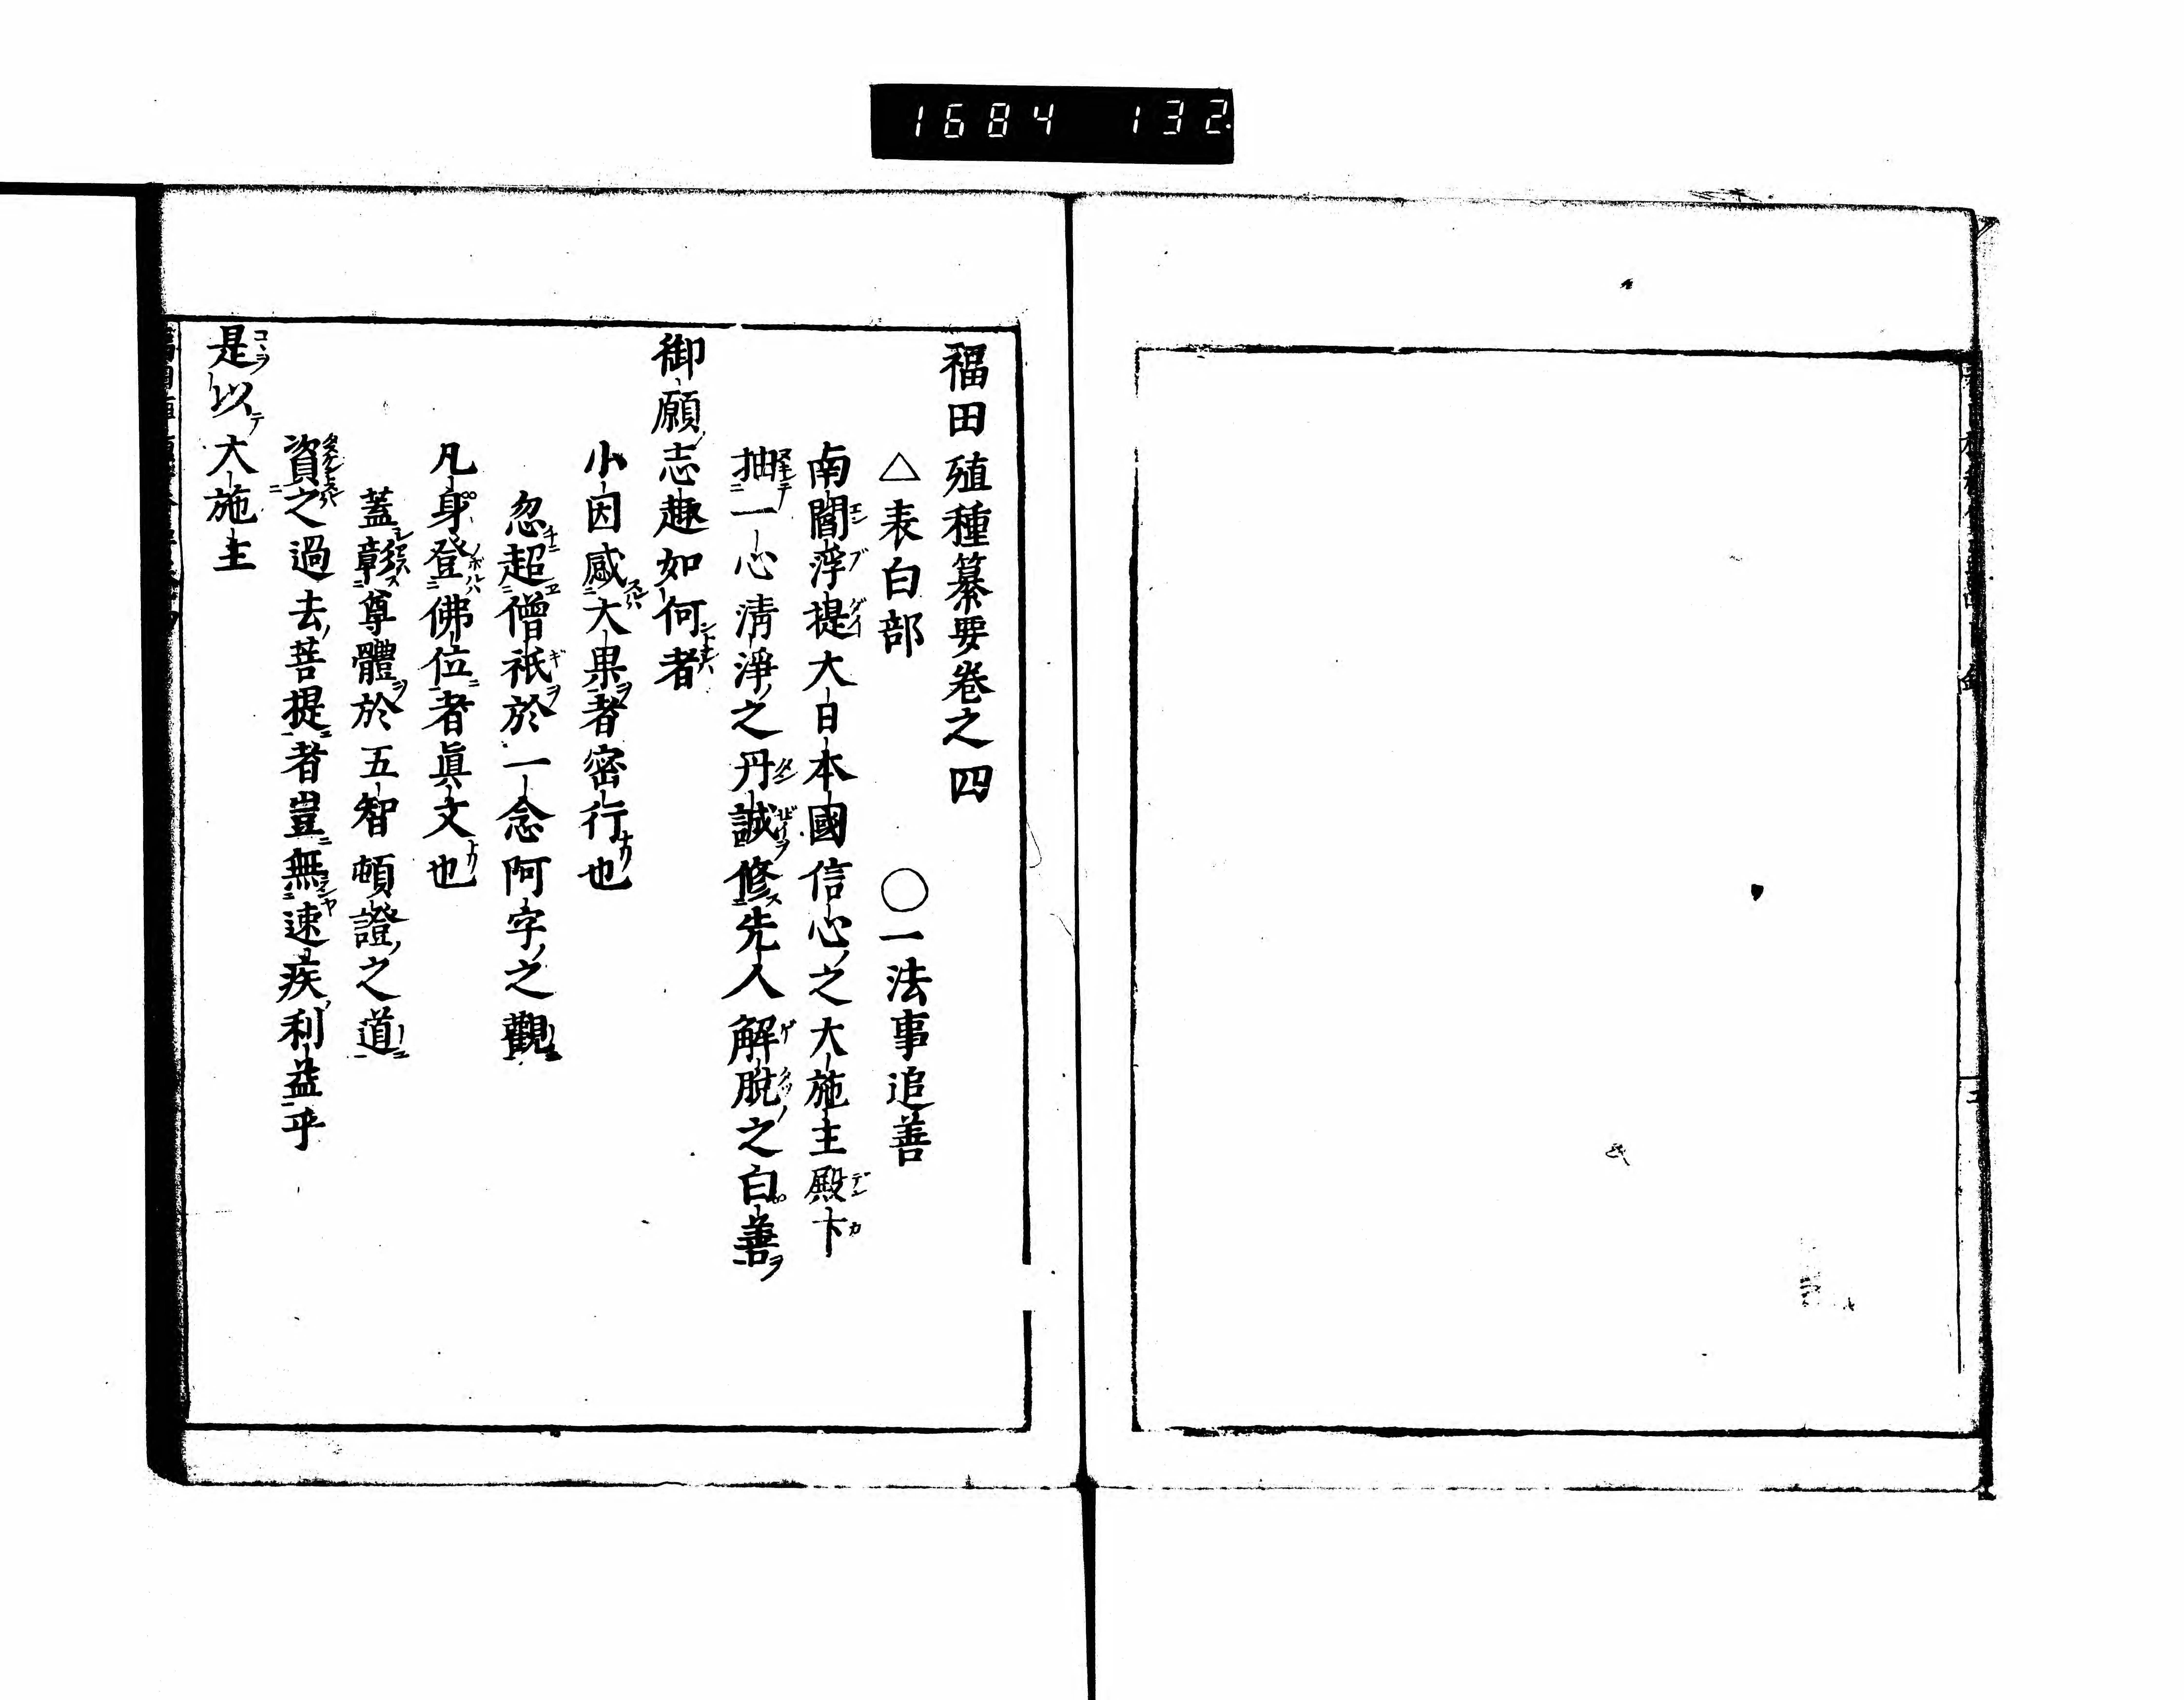 1684 132
福田殖種纂要卷之四
△表白部　○一法事追善
南閻浮提大日本國信心之大施主殿下
抽一心淸淨之丹誠修先人解脫之白善
御願志趣如何者
小因感大果者密行也
忽超僧祇於一念阿字之觀
凡身登佛位者眞文也
蓋彰尊體於五智頓證之道
資之過去菩提者豈無速疾利益乎
是以大施主